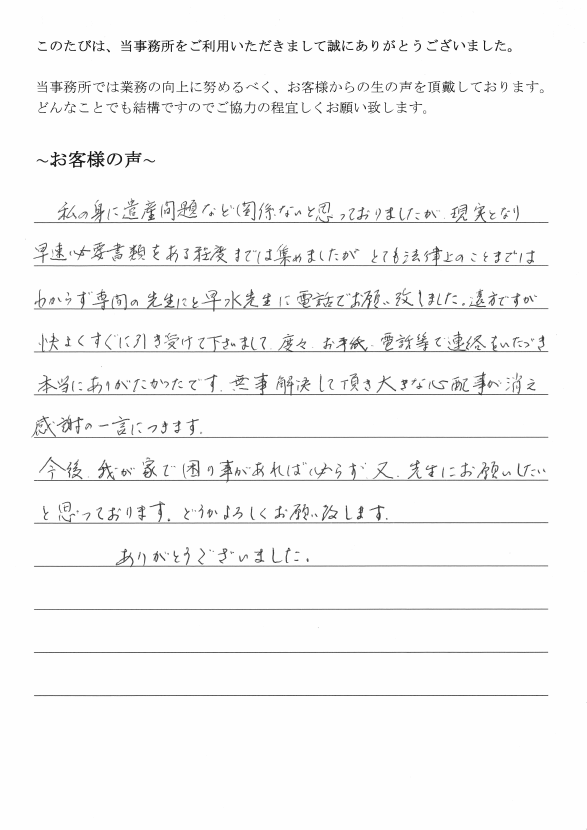 このたびは、当事務所をご利用いただきまして誠にありがとうございました。
当事務所では業務の向上に努めるべく、お客様からの生の声を頂戴しております。
どんなことでも結構ですのでご協力の程宜しくお願い致します。
~お客様の声~
私の身に遺産問題など関係ないと思っておりましたが、現実となり
早速必要書類をある程度までは集めましたが とても法律上のことまでは
わからず専門の先生にと早水先生に電話でお願い致しました。遠方ですが
快よくすぐに引き受けて下さいまして、度々、お手紙、電話等で連絡をいただき
本当にありがたかったです。無事解決して頂き大きな心配事が消え
感謝の一言につきます。
今後、我が家で困り事があれば必らず、又、先生にお願いしたい
と思っております。どうかよろしくお願い致します。
ありがとうございました。